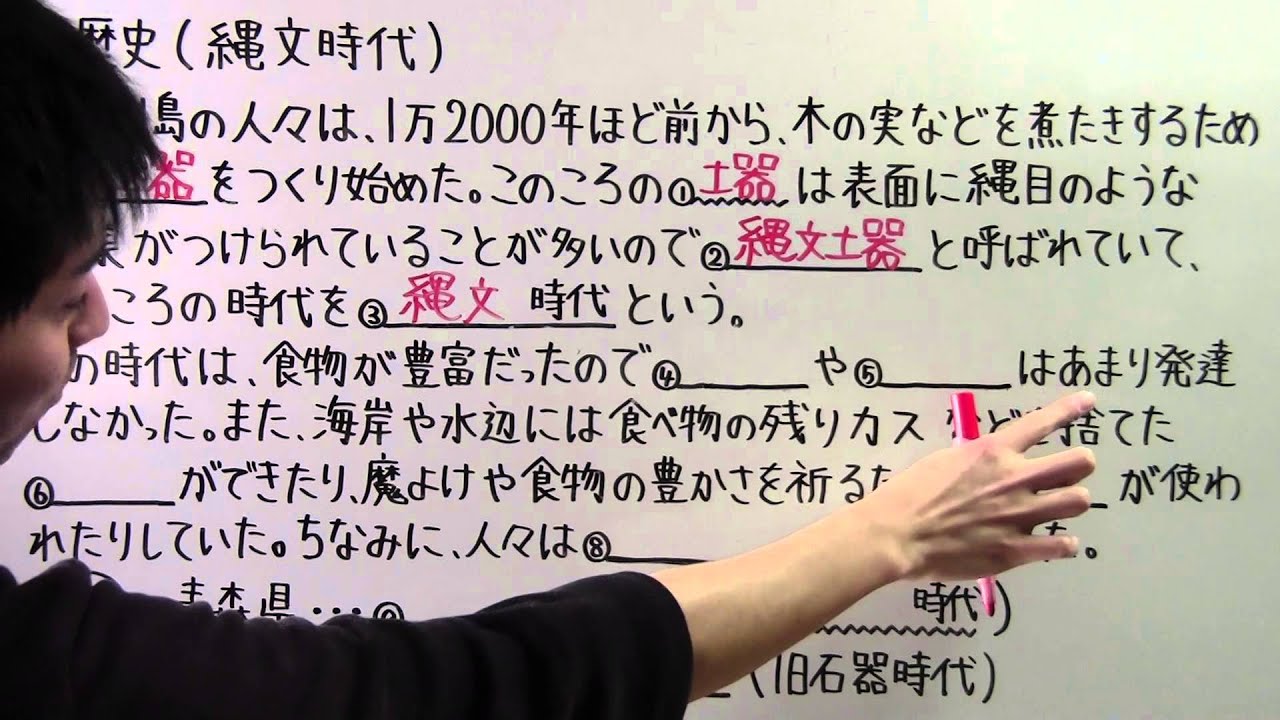 歴史(縄文時代)
島の人々は、1万2000年ほど前から、木の実などを煮たきするため
器をつくり始めた。このころの①土器は表面に縄目のような
がつけられていることが多いので②縄文土器と呼ばれていて、
ころの時代を③縄文 時代という。
の時代は、食物が豊富だったので④______や⑤______はあまり発達
しなかった。また、海岸や水辺には食べ物の残りカス 捨てた
⑥______ができたり、魔よけや食物の豊かさを祈るた が使わ
れたりしていた。ちなみに、人々は⑧______た。
青森県…⑨ 時代)
(旧石器時代)